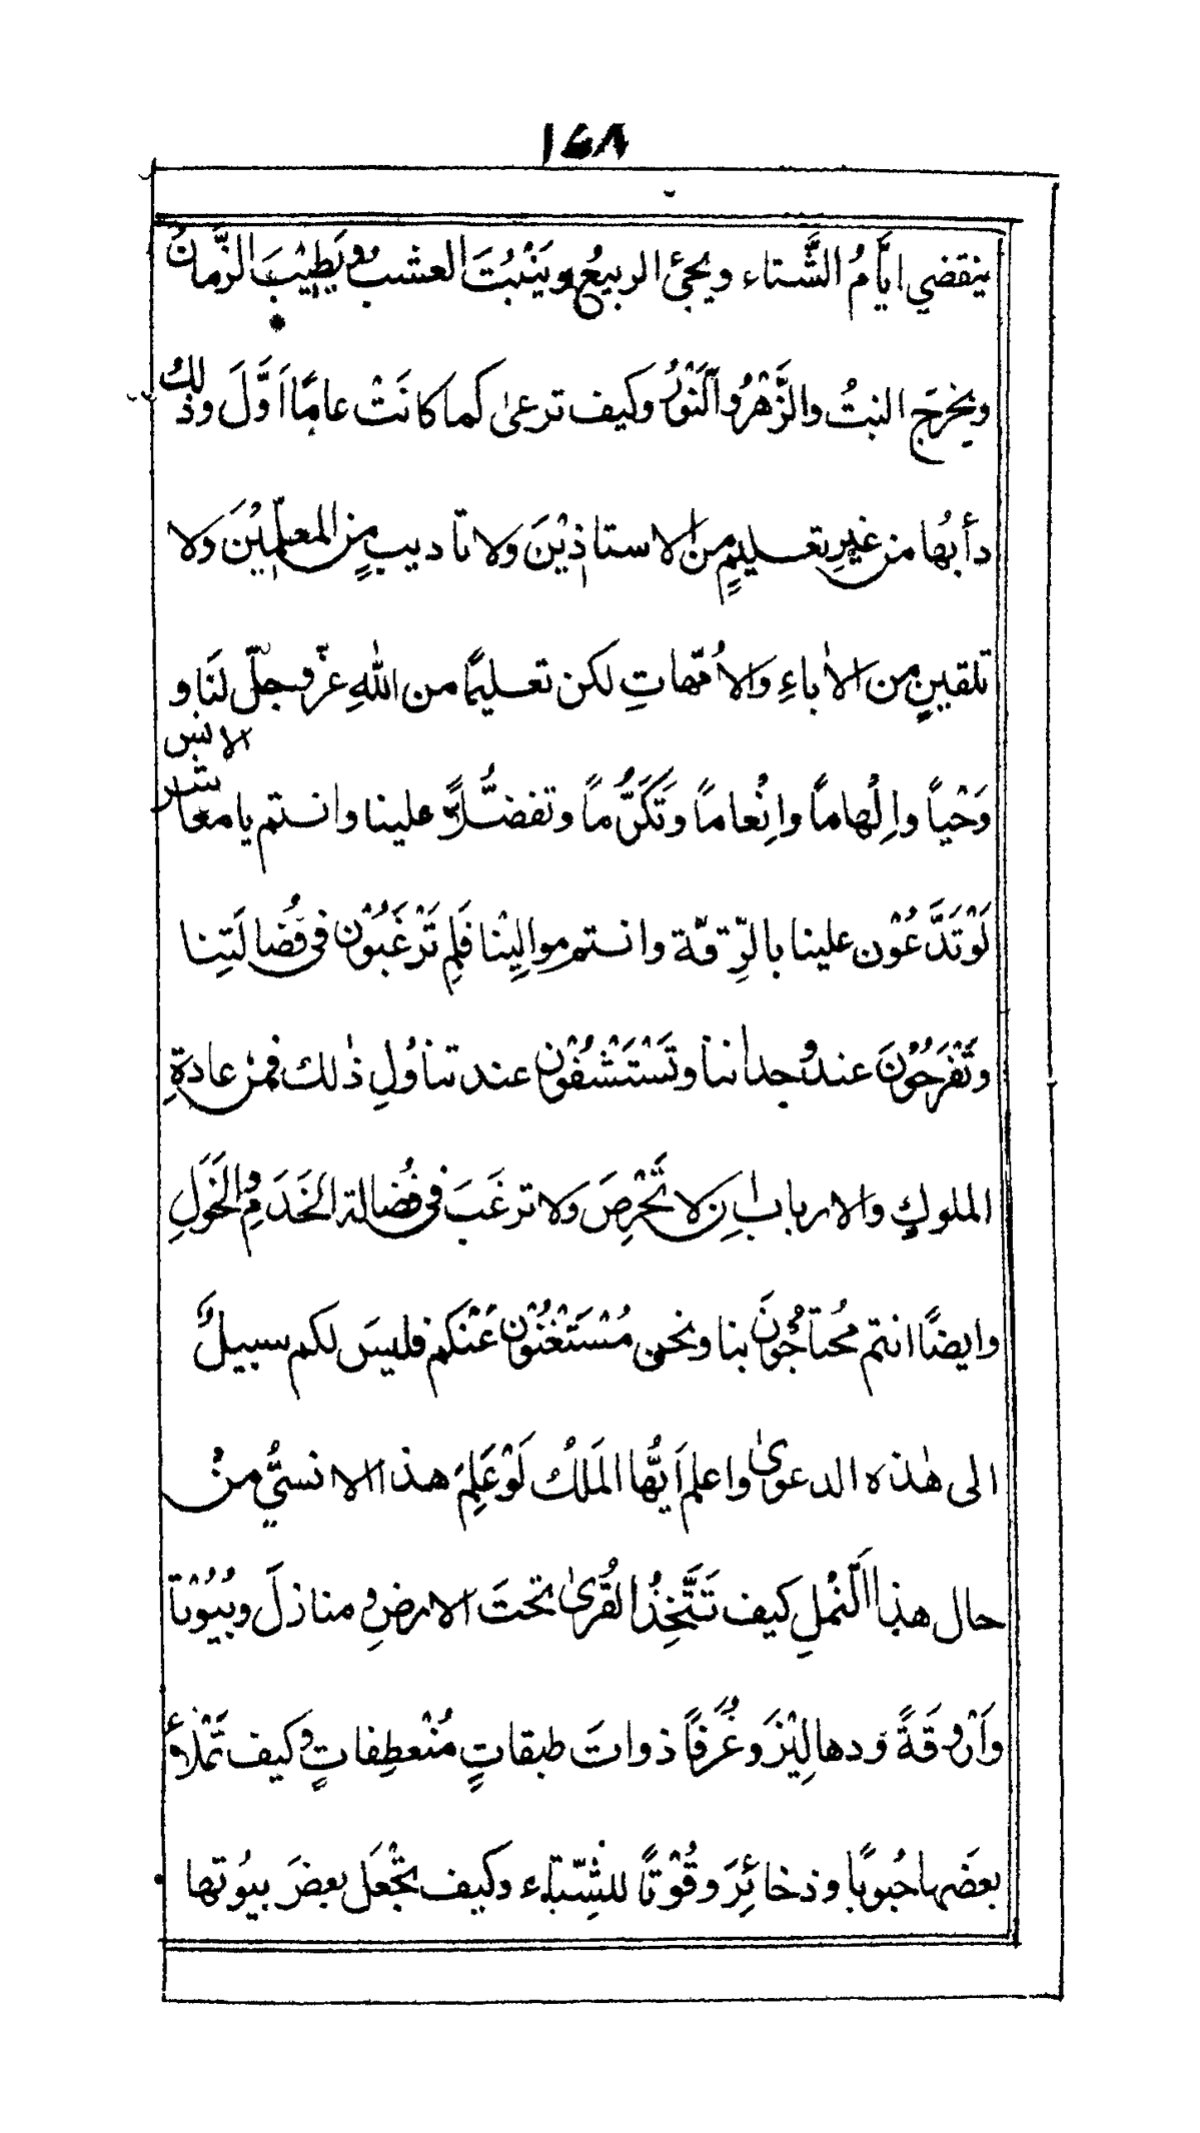 ١٥٨
ينقضي ايَّامُ الشَّتاء ويجئ الربيعُ ويَنْبُتَ العشب ويَطِيْبَ الزَّمانُ
ويخرجَ النبتُ والزَّهْرُ والنَّوْرُ وكيف ترعىٰ كما كانَتْ عامًا اَوَّلَ وذٰلكُ
دأبُها من غيرِ تعليمٍ من الاستاذِيْنَ ولا تاديبٍ من المعلّمِيْنَ ولا
تلقينٍ من الاٰباءِ والاُمّهاتِ لكن تعليمًا من اللهِ عزّوجلّ لنَا و
وَحْياً واِلْهاماً واِنْعاماً وَتَكَرُّماً وتفضُّلاً علينا وانتم يا معاشر الانس
لَوْتَدَّعُوْن علينا بالرِّقّة وانتم موالِيْنا فَلِم تَرْغَبُوْن فى فُضالَتِنا
وتَفْرَحُوْنَ عند وُجداننا وتَسْتَشْفُوْن عند تناوُلِ ذٰلك فمن عادةِ
الملوكِ والارباب اِن لا تَحْرِصَ ولا ترغَبَ فى فُضالة الخَدَمِ والخَوَلِ
وايضًا انتم مُحتاجُوْنَ بنا ونحن مُسْتَغْنُوْن عَنْكم فليسَ لكم سبيلٌ
الى هٰذه الدعوىٰ واعلم اَيُّها المَلَكُ لَوْعَلِمَ هذا الانسيُّ من
حال هذا النَّمْلِ كيف تَتَّخِذُ القُرىٰ تحتَ الارضِ و منازلَ وبُيُوْتًا
واَرْوِقَةً وّدهالِيْزَ وغُرَفاً ذوات طبقاتٍ مُنْعطِفاتٍ وكيف تَمْلأُ
بعضَها حُبوبًا وذخائِرَ وقُوْتًا للشِّتاء وكيف تجْعَل بعضَ بيُوتها